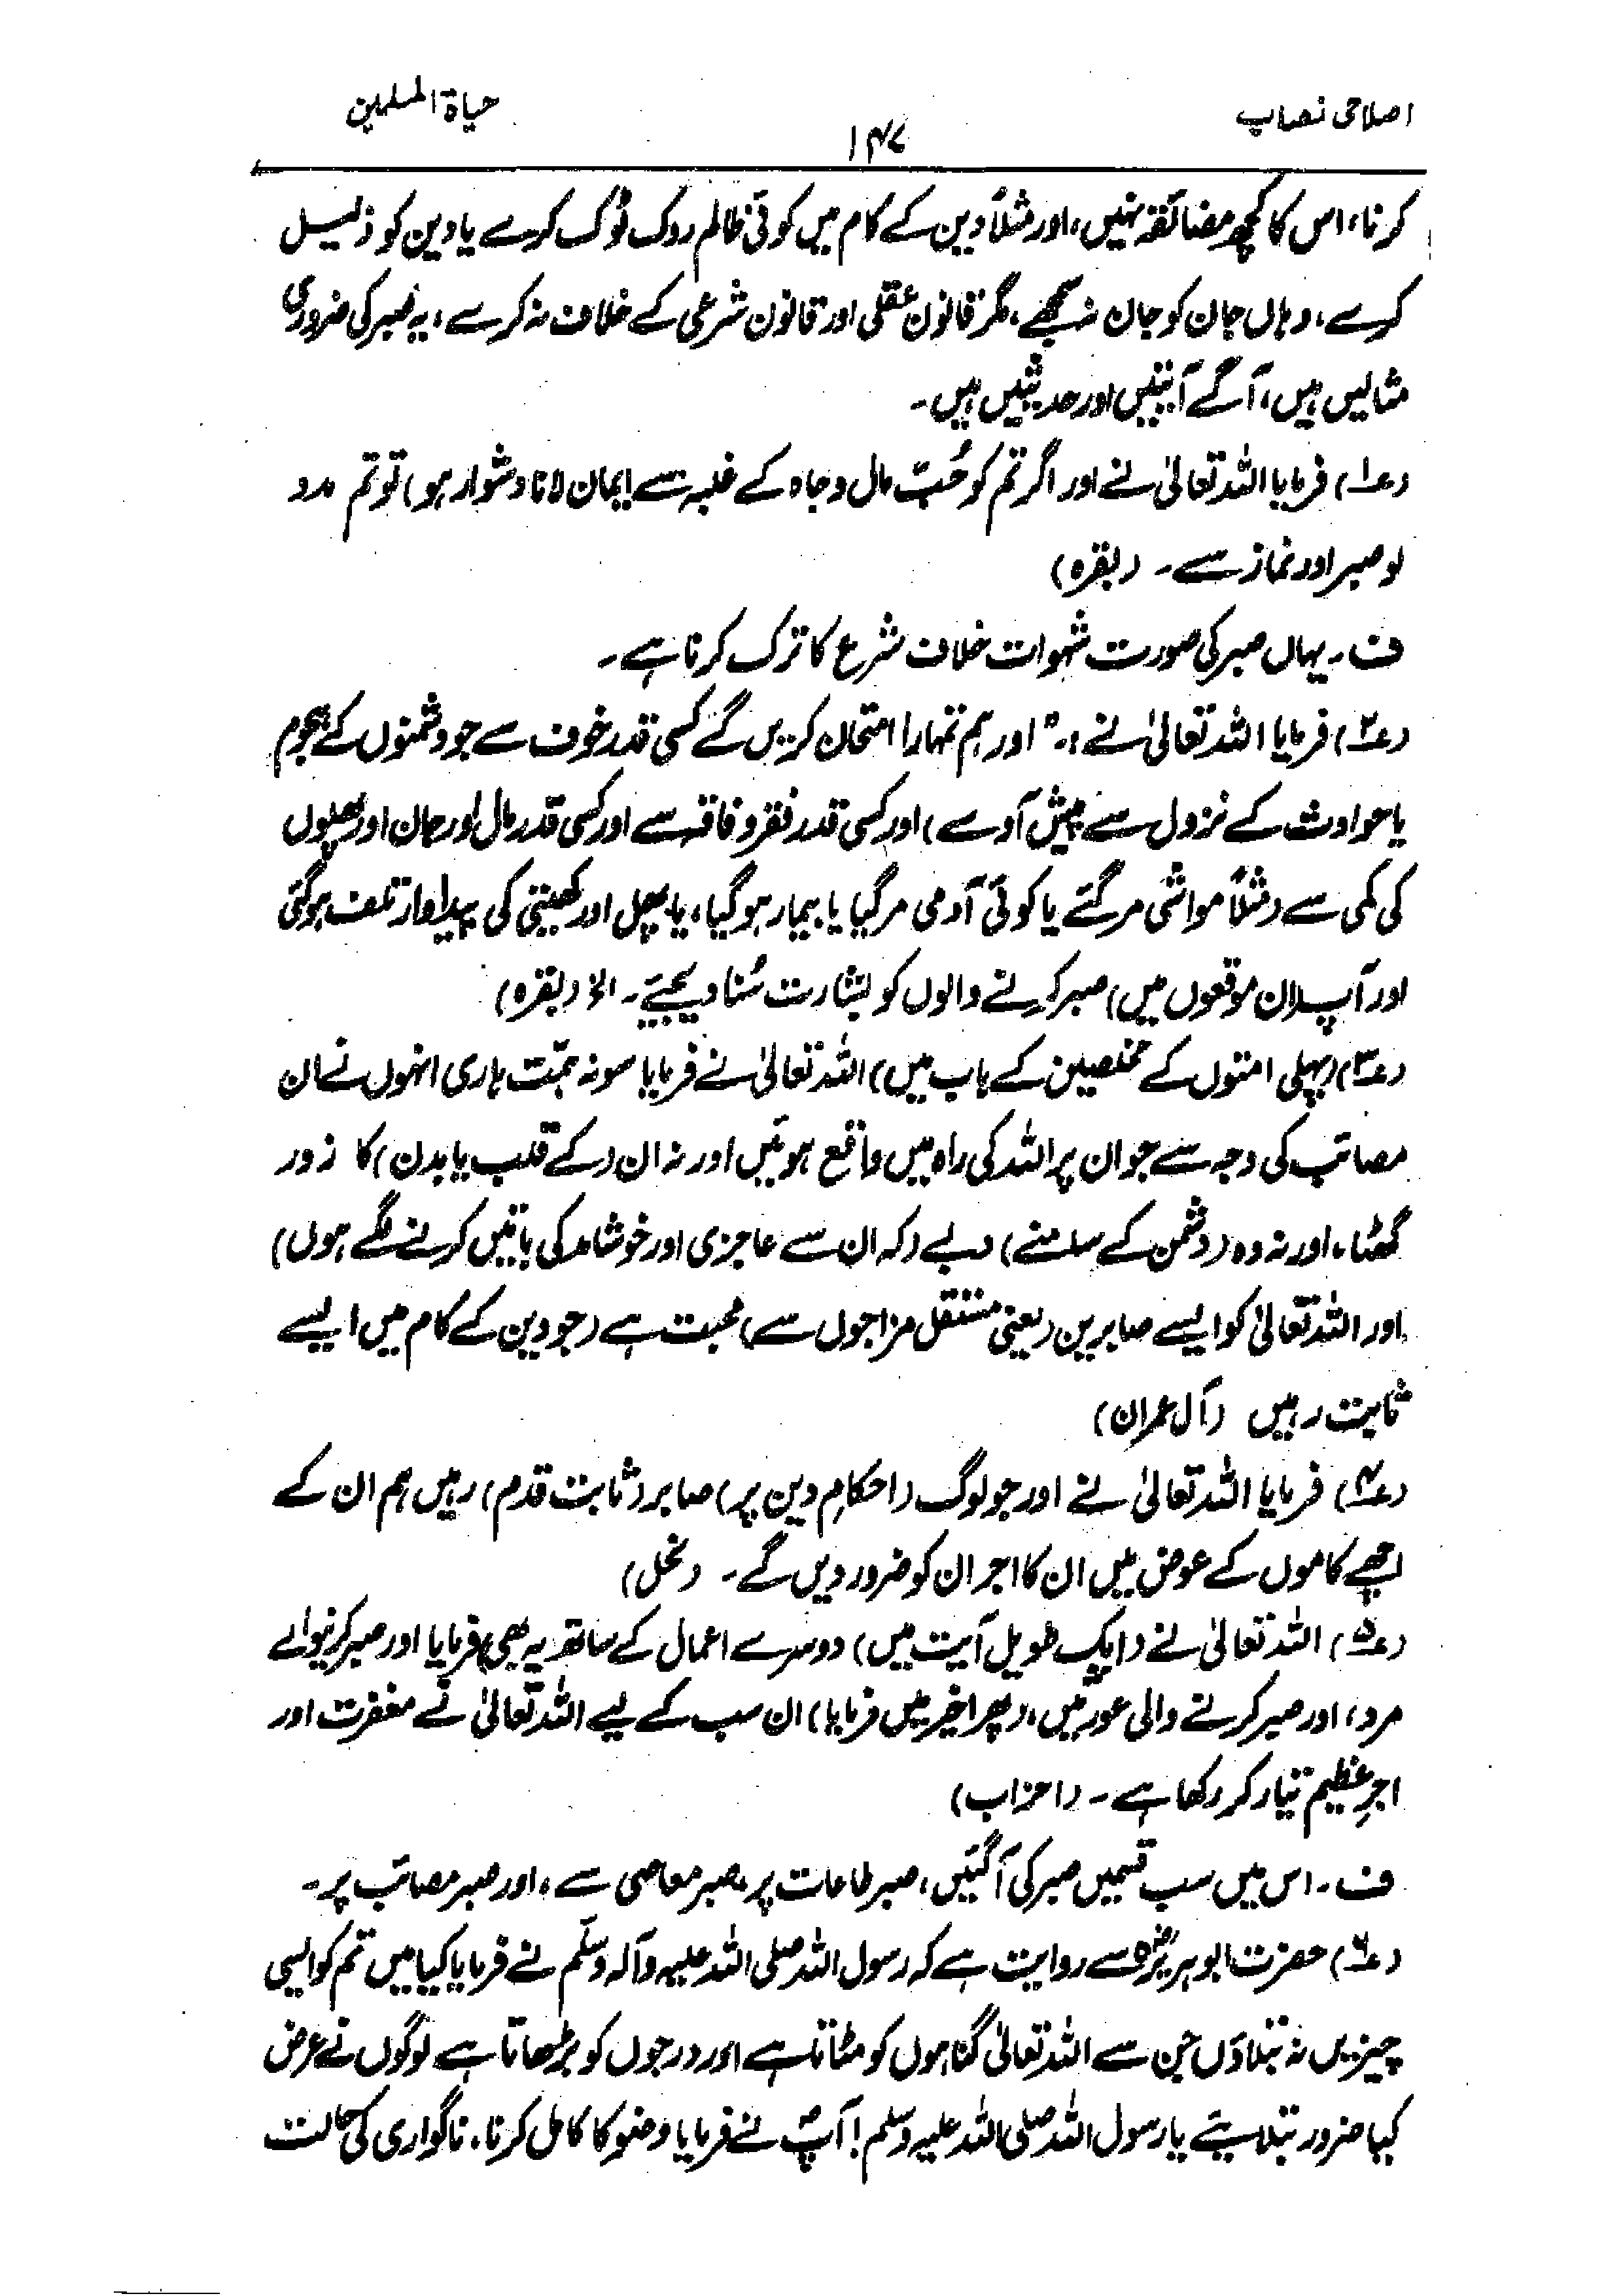 اصلاحی نصاب
حیاة المسلمین
۱۴۷
کرنا، اس کا کچھ مضائقہ نہیں، اور مثلاً دین کے کام میں کوئی ظالم روک ٹوک کرے یا دین کو ذلیل
کرے، وہاں جان کو جان نہ سمجھے، مگر قانون عقلی اور قانون شرعی کے خلاف نہ کرے، یہ صبر کی ضروری
مثالیں ہیں، آگے آیتیں اور حدیثیں ہیں۔
(۱) فرمایا اللہ تعالیٰ نے اور اگر تم کو حُبِّ مال و جاہ کے غلبہ سے ایمان لانا دشوار ہو) تو تم مدد
لو صبر اور نماز سے۔ (بقرہ)
ف۔ یہاں صبر کی صورت شہوات خلاف شرع کا ترک کرنا ہے۔
(۲) فرمایا اللہ تعالیٰ نے :۔" اور ہم تمہارا امتحان کریں گے کسی قدر خوف سے جو دشمنوں کے ہجوم
یا حوادث کے نزول سے پیش آوے) اور کسی قدر فقر و فاقہ سے اور کسی قدر مال اور جان اور پھلوں
کی کمی سے (مثلاً مواشی مر گئے یا کوئی آدمی مر گیا یا بیمار ہو گیا، یا پھل اور کھیتی کی پیداوار تلف ہو گئی
اور آپ (ان موقعوں میں) صبر کرنے والوں کو بشارت سُنا دیجیئے۔ الخ (بقرہ)
(۳) (پہلی امتوں کے مخلصین کے باب میں) اللہ تعالیٰ نے فرمایا سو نہ ہمّت ہاری انہوں نے ان
مصائب کی وجہ سے جو ان پر اللہ کی راہ میں واقع ہوئیں اور نہ ان (کے قلب یا بدن) کا زور
گھٹا، اور نہ وہ (دشمن کے سامنے) دبے (کہ ان سے عاجزی اور خوشامد کی باتیں کرنے لگے ہوں)
اور اللہ تعالیٰ کو ایسے صابرین (یعنی مستقل مزاجوں سے) محبت ہے (جو دین کے کام میں ایسے
ثابت رہیں (آل عمران)
(۴) فرمایا اللہ تعالیٰ نے اور جو لوگ (احکامِ دین پر) صابر (ثابت قدم) رہیں ہم ان کے
اچھے کاموں کے عوض میں ان کا اجر ان کو ضرور دیں گے۔ (نحل)
(۵) اللہ تعالیٰ نے (ایک طویل آیت میں) دوسرے اعمال کے ساتھ یہ بھی) فرمایا اور صبر کرنیوالے
مرد، اور صبر کرنے والی عورتیں، (پھر اخیر میں فرمایا) ان سب کے لیے اللہ تعالیٰ نے مغفرت اور
اجرِ عظیم تیار کر رکھا ہے۔ (احزاب)
ف۔ اس میں سب قسمیں صبر کی آ گئیں، صبر طاعات پر، صبر معاصی سے، اور صبر مصائب پر۔
(۶) حضرت ابوہریرہؓ سے روایت ہے کہ رسول اللہ صلی اللہ علیہ وآلہ وسلّم نے فرمایا کیا میں تم کو ایسی
چیزیں نہ بتلاؤں جن سے اللہ تعالیٰ گناہوں کو مٹاتا ہے اور درجوں کو بڑھاتا ہے لوگوں نے عرض
کیا ضرور بتلایئے یا رسول اللہ صلی اللہ علیہ وسلم! آپؐ نے فرمایا وضو کا کامل کرنا، ناگواری کی حالت